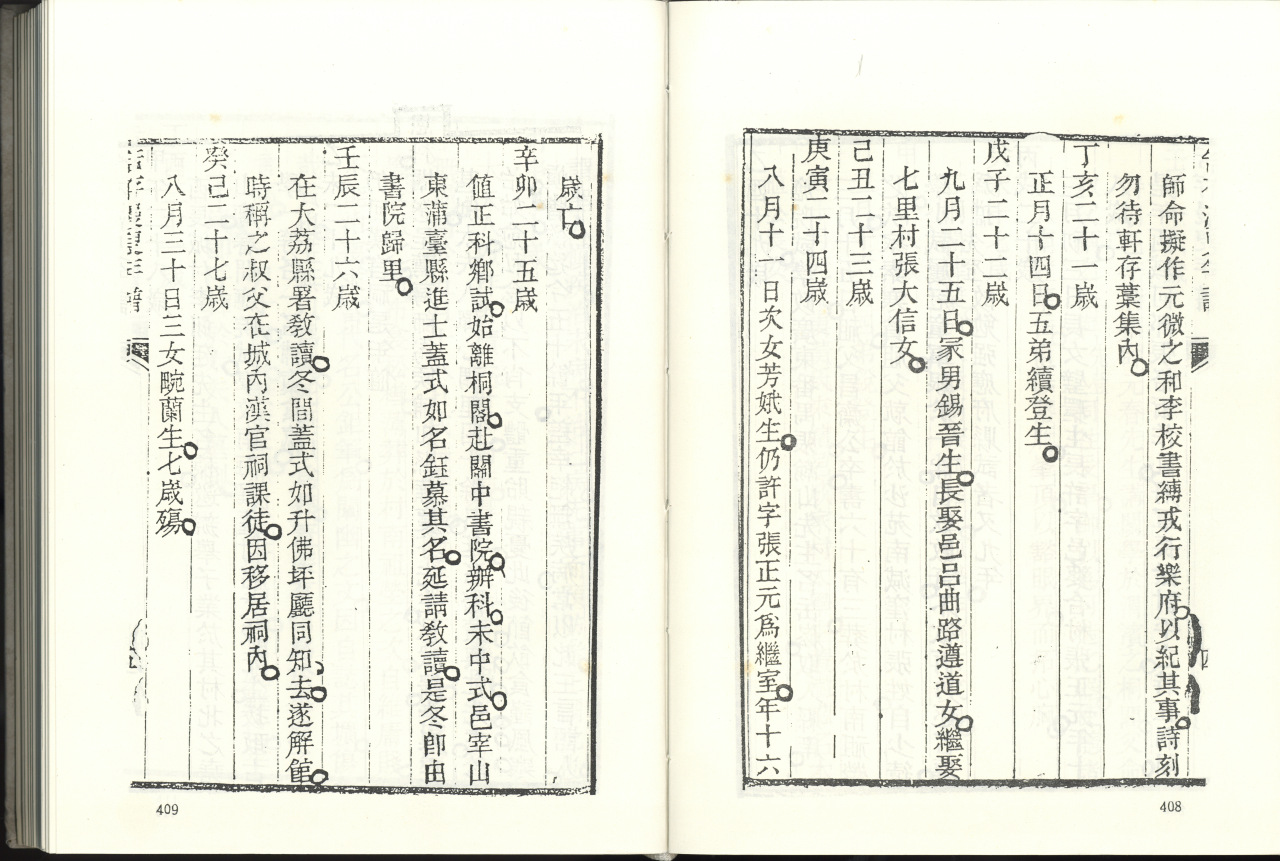 師命擬作元微之和李校書縛戎行樂府以紀其事詩刻
勿待軒存藁集內
丁亥二十一歲
正月十四日五弟續登生
戊子二十二歲
九月二十五日冢男錫晉生長娶邑呂曲路遵道女繼娶
七里村張大信女
己丑二十三歲
庚寅二十四歲
八月十一日次女芳娥生仍許字張正元爲繼室年十六
408
歲亡
辛卯二十五歲
値正科鄉試始離桐閣赴關中書院辦科未中式邑宰山
東蒲臺縣進士蓋式如名鈺慕其名延請教讀是冬卽由
書院歸里
壬辰二十六歲
在大荔縣署教讀冬間蓋式如升佛坪廳同知去遂解館
時稱之叔父在城內漢官祠課徒因移居祠內
癸巳二十七歲
八月三十日三女畹蘭生七歲殤
409